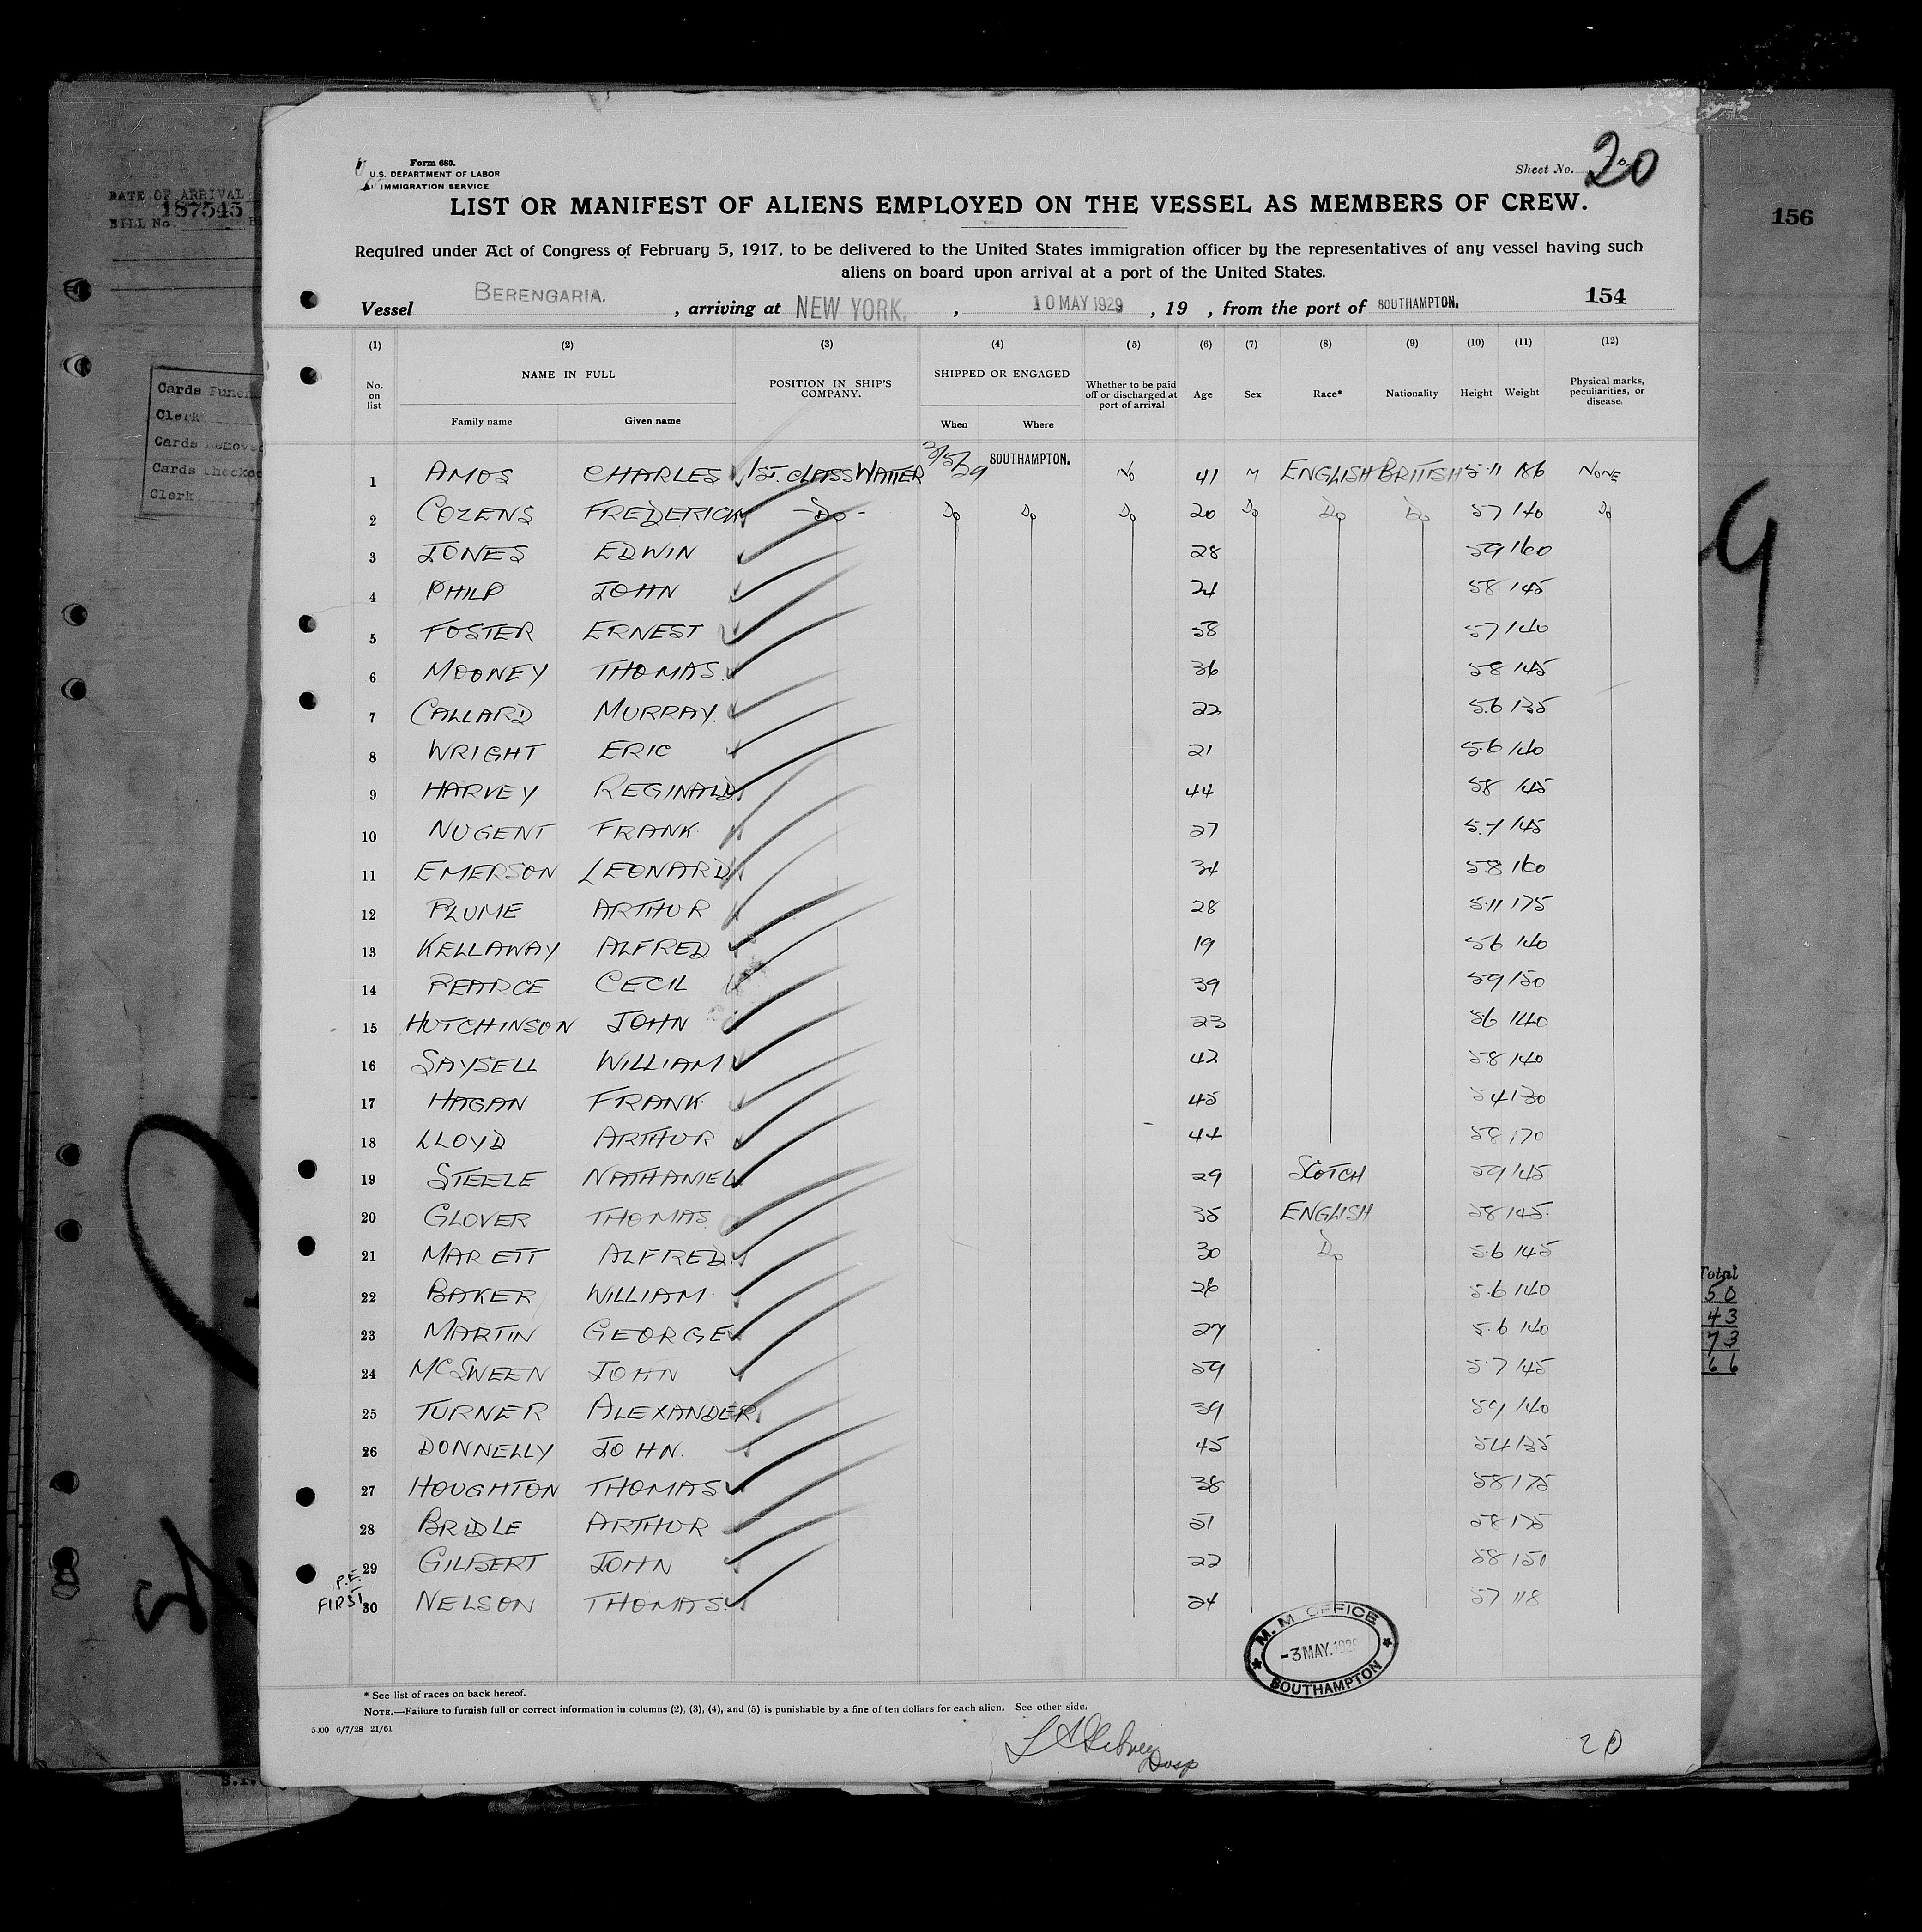 Form 680.
U.S. DEPARTMENT OF LABOR
IMMIGRATION SERVICE
Sheet No. 20
DATE OF ARRIVAL
187545
BILL No.
156
LIST OR MANIFEST OF ALIENS EMPLOYED ON THE VESSEL AS MEMBERS OF CREW.
Required under Act of Congress of February 5, 1917, to be delivered to the United States immigration officer by the representatives of any vessel having such
aliens on board upon arrival at a port of the United States.
154
Vessel BERENGARIA. , arriving at NEW YORK. , 10 MAY 1929 , 19 , from the port of SOUTHAMPTON.
(1) (2) (3) (4) (5) (6) (7) (8) (9) (10) (11) (12)
No. on list NAME IN FULL Family name Given name POSITION IN SHIP'S COMPANY. SHIPPED OR ENGAGED When Where Whether to be paid off or discharged at port of arrival Age Sex Race* Nationality Height Weight Physical marks, peculiarities, or disease.
1 AMOS CHARLES 1ST. CLASS WAITER 3/5/29 SOUTHAMPTON. No 41 M ENGLISH BRITISH 5·11 186 NONE
2 COZENS FREDERICK -Do- Do Do Do 20 Do Do Do 57 140 Do
3 JONES EDWIN 28 59 160
4 PHILP JOHN 24 58 145
5 FOSTER ERNEST 58 57 140
6 MOONEY THOMAS 36 58 145
7 CALLARD MURRAY. 22 5.6 135
8 WRIGHT ERIC 21 5.6 140
9 HARVEY REGINALD 44 58 145
10 NUGENT FRANK 27 5.7 145
11 EMERSON LEONARD 34 58 160
12 PLUME ARTHUR 28 5·11 175
13 KELLAWAY ALFRED 19 56 140
14 PEARCE CECIL 39 59 150
15 HUTCHINSON JOHN 23 5.6 140
16 SAYSELL WILLIAM 42 5.8 140
17 HAGAN FRANK 45 54 130
18 LLOYD ARTHUR 44 58 170
19 STEELE NATHANIEL 29 SCOTCH 59 145
20 GLOVER THOMAS 35 ENGLISH 58 145
21 MARETT ALFRED 30 Do 5.6 145
22 BAKER WILLIAM 26 5.6 140
23 MARTIN GEORGE 27 5.6 140
24 McSWEEN JOHN 59 5·7 145
25 TURNER ALEXANDER 39 59 140
26 DONNELLY JOHN. 45 54 135
27 HOUGHTON THOMAS 38 58 175
28 BRIDLE ARTHUR 51 58 175
29 GILBERT JOHN 22 58 150
P.E. FIRST 30 NELSON THOMAS 24 57 118
M. M. OFFICE
-3 MAY. 1929
SOUTHAMPTON
* See list of races on back hereof.
NOTE.—Failure to furnish full or correct information in columns (2), (3), (4), and (5) is punishable by a fine of ten dollars for each alien. See other side.
5000 6/7/28 21/61
20
Cards
Clerk
Cards
Cards Checked
Clerk
9
Total
50
43
73
66